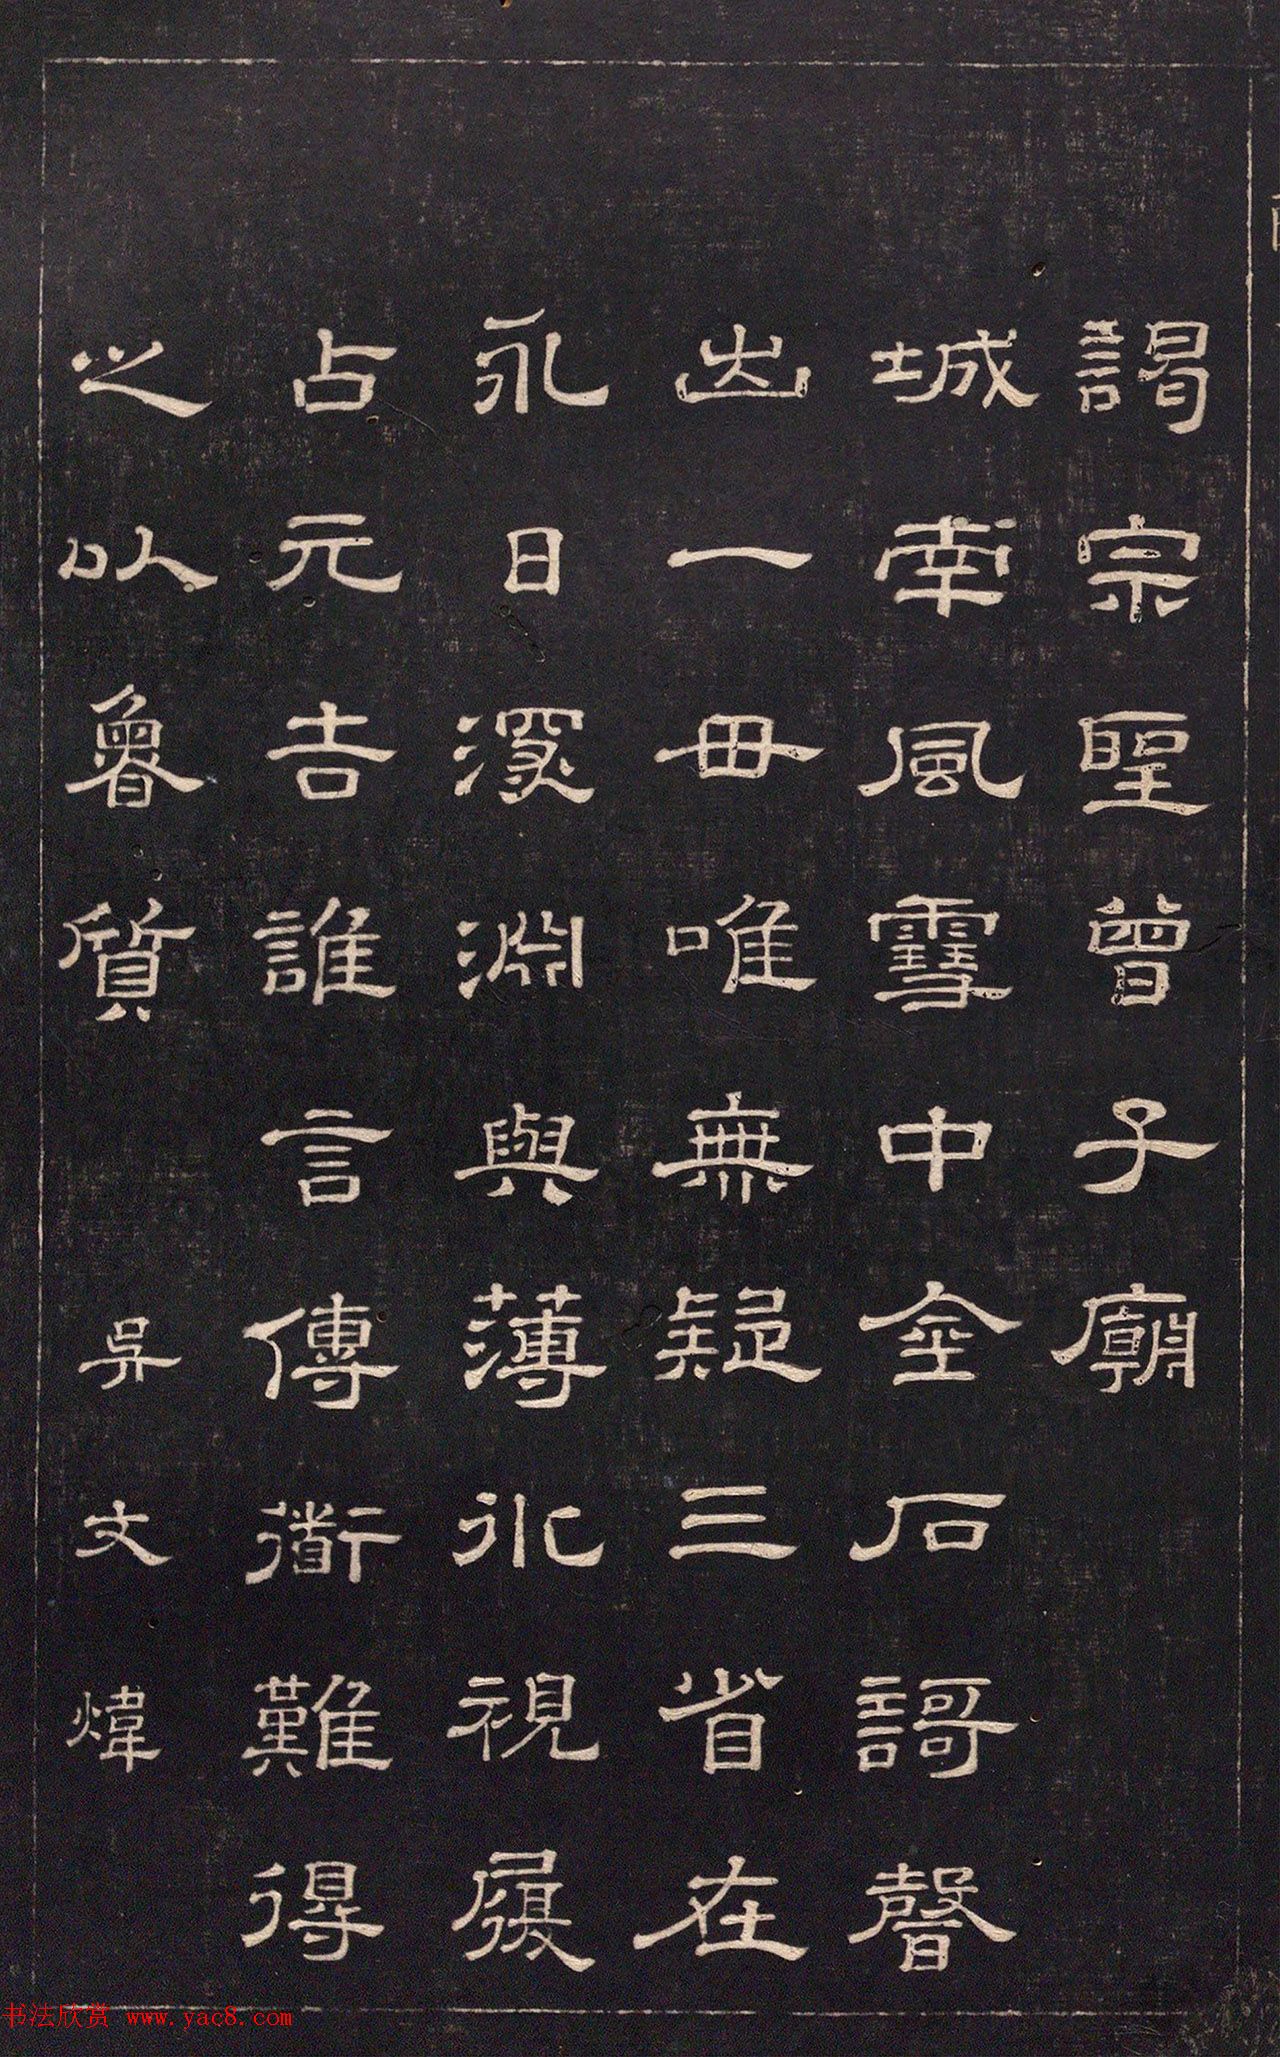 謁宗聖曾子廟
城南風雪中金石謌聲
出一毌唯無疑三省在
永日深淵與薄冰視履
占元吉誰言傳衜難得
之以魯質 吳文煒
书法欣赏 www.yac8.com